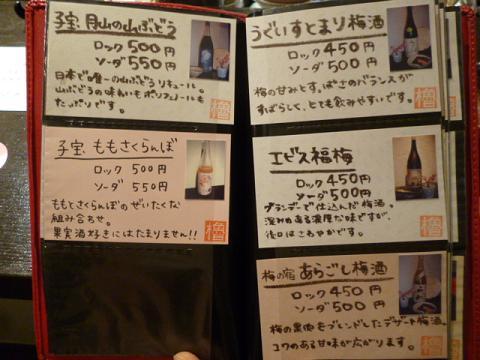 子宝 月山の山ぶどう
ロック 500円
ソーダ 550円
日本で唯一の山ぶどうリキュール。
山ぶどうの味わいもポリフェノールも
たっぷりです。
櫓
子宝 ももさくらんぼ
ロック 500円
ソーダ 550円
ももとさくらんぼのぜいたくな
組み合わせ。
果実酒好きにはたまりません!!
櫓
うぐいすとまり梅酒
ロック 450円
ソーダ 500円
梅の甘みとすっぱさのバランスが
すばらしく、とても飲みやすいです。
櫓
エビス福梅
ロック 450円
ソーダ 500円
ブランデーで仕込んだ梅酒。
深みのある濃厚な味ですが、
後口はさわやかです。
櫓
梅の宿 あらごし梅酒
ロック 450円
ソーダ 500円
梅の果肉をブレンドしたデザート梅酒。
コクのある甘味が広がります。
櫓